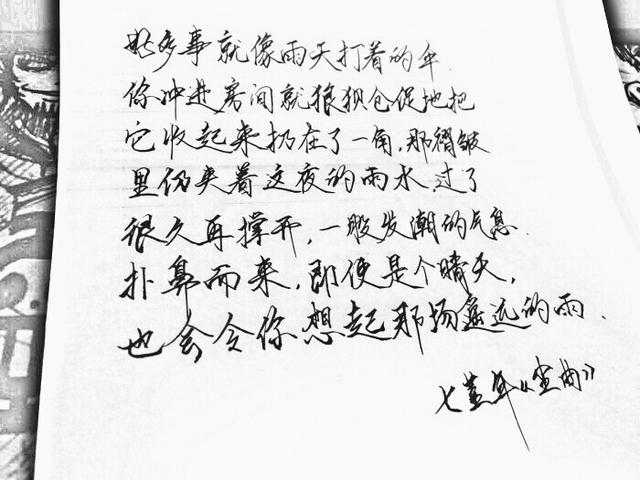 好多事就像雨天打着的伞.
你冲进房间就狼狈仓促地把
它收起来扔在了一角,那褶皱
里仍夹着这夜的雨水.过了
很久再撑开,一股发潮的气息.
扑鼻而来,即便是个晴天,
也会令你想起那场遥远的雨.
七堇年《尘曲》